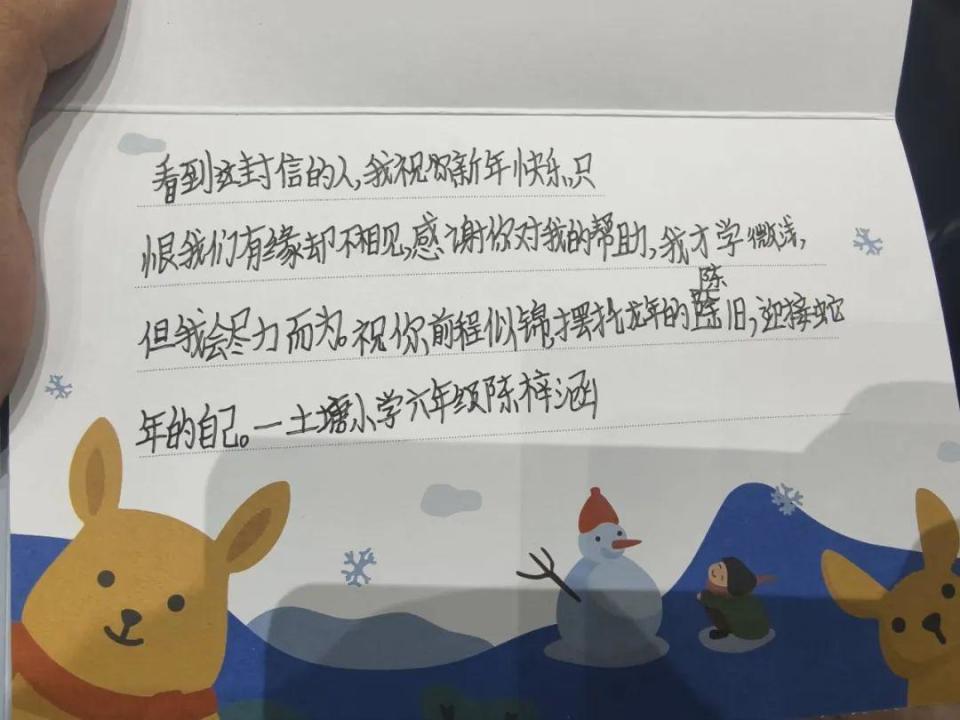 看到这封信的人,我祝你新年快乐,只
恨我们有缘却不相见,感谢你对我的帮助,我才学微浅,
但我会尽力而为。祝你前程似锦,摆托龙年的陈旧,迎接蛇
年的自己。一土塘小学六年级陈梓涵